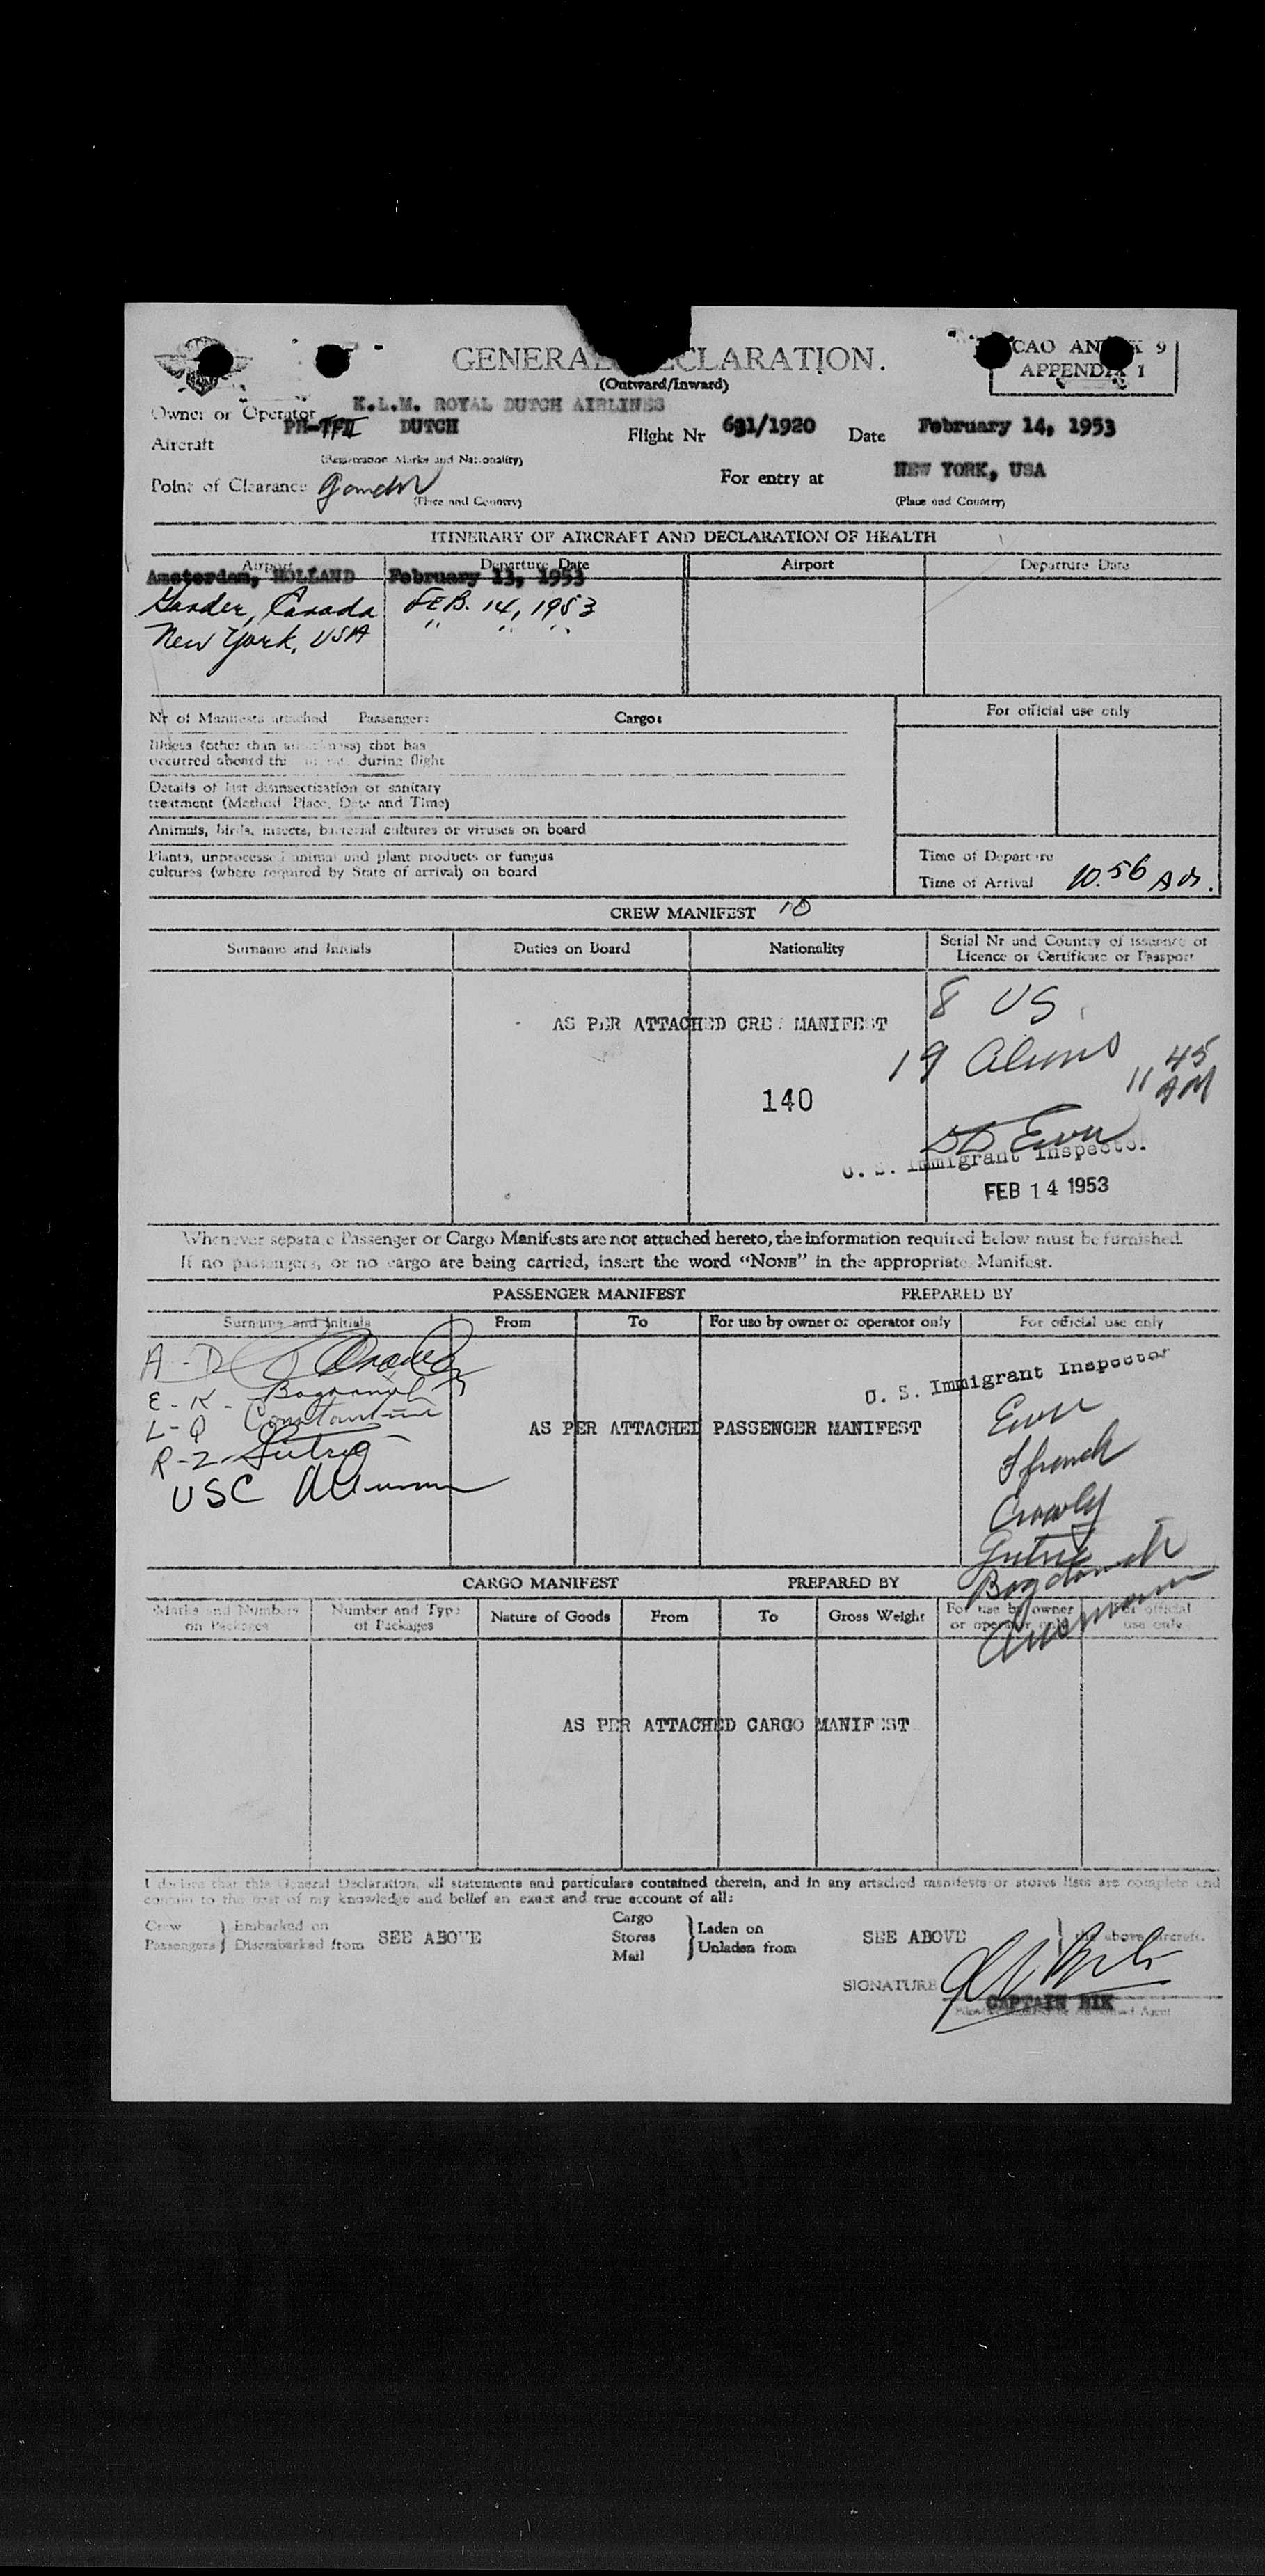 GENERAL DECLARATION.
(Outward/Inward)
ICAO ANNEX 9
APPENDIX 1
Owner or Operator K.L.M. ROYAL DUTCH AIRLINES
Aircraft PH-TFD DUTCH
(Registration Marks and Nationality)
Flight Nr 631/1920 Date February 14, 1953
Point of Clearance Gander
(Place and Country)
For entry at NEW YORK, USA
(Place and Country)
ITINERARY OF AIRCRAFT AND DECLARATION OF HEALTH
Airport Departure Date Airport Departure Date
Amsterdam, HOLLAND February 13, 1953
Gander, Canada FEB. 14, 1953
New York, USA " " "
Nr of Manifests attached Passenger: Cargo: For official use only
Illness (other than airsickness) that has
occurred aboard the during flight
Details of last disinsectization or sanitary
treatment (Method, Place, Date and Time)
Animals, birds, insects, bacterial cultures or viruses on board
Plants, unprocessed animal and plant products or fungus
cultures (where required by State of arrival) on board
Time of Departure
Time of Arrival 10.56 AM.
CREW MANIFEST 10
Surname and Initials Duties on Board Nationality Serial Nr and Country of issuance of
Licence or Certificate or Passport
AS PER ATTACHED CREW MANIFEST
8 US
19 Aliens
11 45 AM
140
U. S. Immigrant Inspector
FEB 14 1953
Whenever separate Passenger or Cargo Manifests are not attached hereto, the information required below must be furnished.
If no passengers, or no cargo are being carried, insert the word “NONE” in the appropriate Manifest.
PASSENGER MANIFEST PREPARED BY
Surname and Initials From To For use by owner or operator only For official use only
A - D
E - K -
L - Q Constantine
R - Z -
USC
U. S. Immigrant Inspector
AS PER ATTACHED PASSENGER MANIFEST
Crowly
CARGO MANIFEST PREPARED BY
Marks and Numbers on Packages Number and Type of Packages Nature of Goods From To Gross Weight For use by owner or operator only For official use only
AS PER ATTACHED CARGO MANIFEST
I declare that this General Declaration, all statements and particulars contained therein, and in any attached manifests or stores lists are complete and
contain to the best of my knowledge and belief an exact and true account of all:
Crew Passengers } Embarked on Disembarked from SEE ABOVE
Cargo Stores Mail } Laden on Unladen from SEE ABOVE } the above aircraft.
SIGNATURE
CAPTAIN BIK